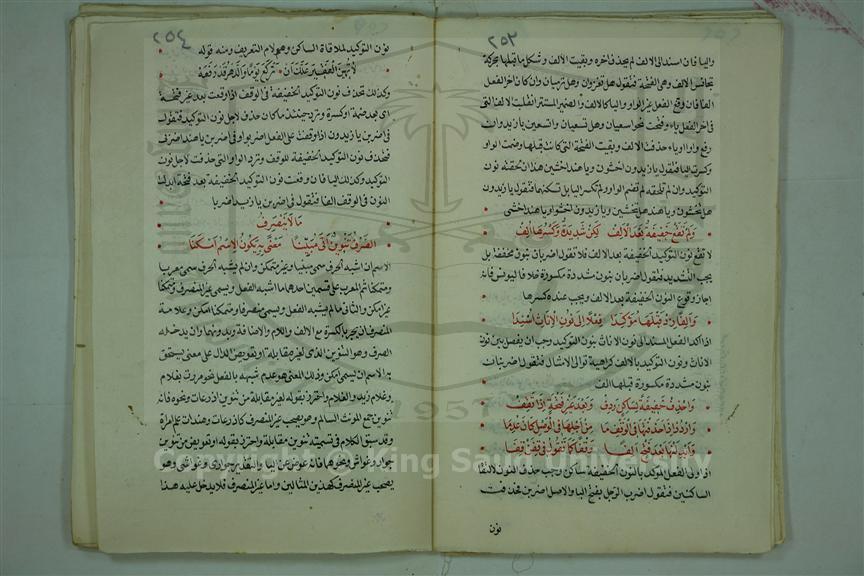 ٢٥٣
واليا فان اسند الى الالف لم يحذف اخره وبقيت الالف وشكل ما قبلها بحركة
تجانس الالف وهي الفتحة فتقول هل تغزوان وهل ترميان وان كان اخر الفعل
الفا فان رفع الفعل غير الواو واليا كالالف والضمير المستتر انقلبت الالف التي
في اخر الفعل ياء وفتحت نحو اسعيان وهل تسعيان واسعين يا زيد وان
رفع واوا او ياء حذفت الالف وبقيت الفتحة التي كانت قبلها وضمت الواو
وكسرت اليا فتقول يا زيدون اخشون ويا هند اخشين هذا ان لحقته نون
التوكيد وان لم تلحقه لم تضم الواو ولم تكسر اليا بل تسكنهما فتقول يا زيدون
هل تخشون ويا هند هل تخشين ويا زيدون اخشوا ويا هند اخشي
ولم تقع خفيفة بعد الالف لكن شديدة وكسرها الف
لا تقع نون التوكيد الخفيفة بعد الالف فلا تقول اضربان بنون مخففة بل
يجب التشديد فتقول اضربان بنون مشددة مكسورة خلافا ليونس فانه
اجاز وقوع النون الخفيفة بعد الالف ويجب عنده كسرها
والفا زد قبلها مؤكدا فعلا الى نون الاناث اسندا
اذا اكد الفعل المسند الى نون الاناث بنون التوكيد وجب ان يفصل بين نون
الاناث ونون التوكيد بالالف كراهية توالي الامثال فتقول اضربنان
بنون مشددة مكسورة قبلها الف
واحذف خفيفة لساكن ردف وبعد غير فتحة اذا تقف
واردد اذا حذفتها في الوقف ما من اجلها في الوصل كان عدما
وابدلنها بعد فتح الفا وقفا كما تقول في قفن قفا
اذا ولي الفعل المؤكد بالنون الخفيفة ساكن وجب حذف النون لالتقا
الساكنين فتقول اضرب الرجل بفتح البا والاصل اضربن فحذفت
نون
٢٥٤
نون التوكيد لملاقاة الساكن وهو لام التعريف ومنه قوله
لا تهين الفقير علك ان تركع يوما والدهر قد رفعه
وكذلك تحذف نون التوكيد الخفيفة في الوقف اذا وقعت بعد غير فتحة
اي بعد ضمة او كسرة وترد حينئذ ما كان حذف لاجل نون التوكيد فتقول
في اضربن يا زيدون اذا وقفت على الفعل اضربوا وفي اضربن يا هند اضربي
فتحذف نون التوكيد الخفيفة للوقف وترد الواو التي حذفت لاجل نون
التوكيد وكذلك اليا فان وقعت نون التوكيد الخفيفة بعد فتحة ابدلت
النون في الوقف الفا فتقول في اضربن يا زيد اضربا
ما لا ينصرف
الصرف تنوين اتى مبينا معنى به يكون الاسم امكنا
الاسم ان اشبه الحرف سمي مبنيا وغير متمكن وان لم يشبه الحرف سمي معربا
ومتمكنا ثم المعرب على قسمين احدهما ما اشبه الفعل ويسمى غير المنصرف ومتمكنا
غير امكن والثاني ما لم يشبه الفعل ويسمى منصرفا ومتمكنا امكن وعلامة
المنصرف ان يجر بالكسرة مع الالف واللام والاضافة وبدونهما وان يدخله
الصرف وهو التنوين الذي لغير مقابلة او تعويض الدال على معنى يستحق
به الاسم ان يسمى امكن وذلك المعنى هو عدم شبهه بالفعل نحو مررت بغلام
وغلام زيد والغلام واحترز بقوله لغير مقابلة من تنوين اذرعات ونحوه فانه
تنوين جمع المونث السالم وهو يصحب غير المنصرف كاذرعات وهندات علم امراة
وقد سبق الكلام في تسميته تنوين مقابلة واحترز بقوله او تعويض من تنوين
جوار وغواش ونحوهما فانه عوض عن اليا والتقدير جواري وغواشي وهو
يصحب غير المنصرف كهذين المثالين واما غير المنصرف فلا يدخل عليه هذا
1957
Copyright © King Saud University